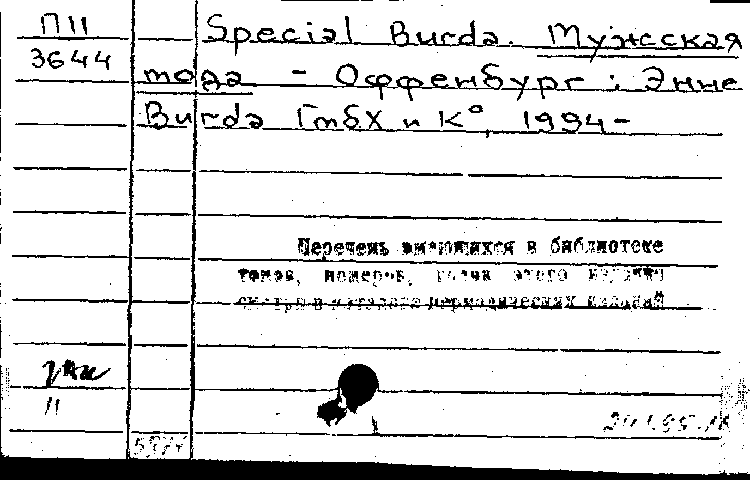 П11 Special Burda. Мужская
3644 мода - Оффенбург : Энне
Burda ГмбХ и К°, 1994-
Перечень имеющихся в библиотеке
томов, номеров, годов этого издания
смотри в каталоге периодических изданий
11